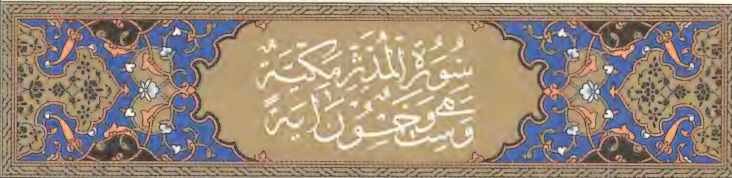 سُورَةُ الْمُدَّثِّرِ مَكِّيَّةٌ
وَهِيَ سِتٌّ وَخَمْسُونَ آيَةً